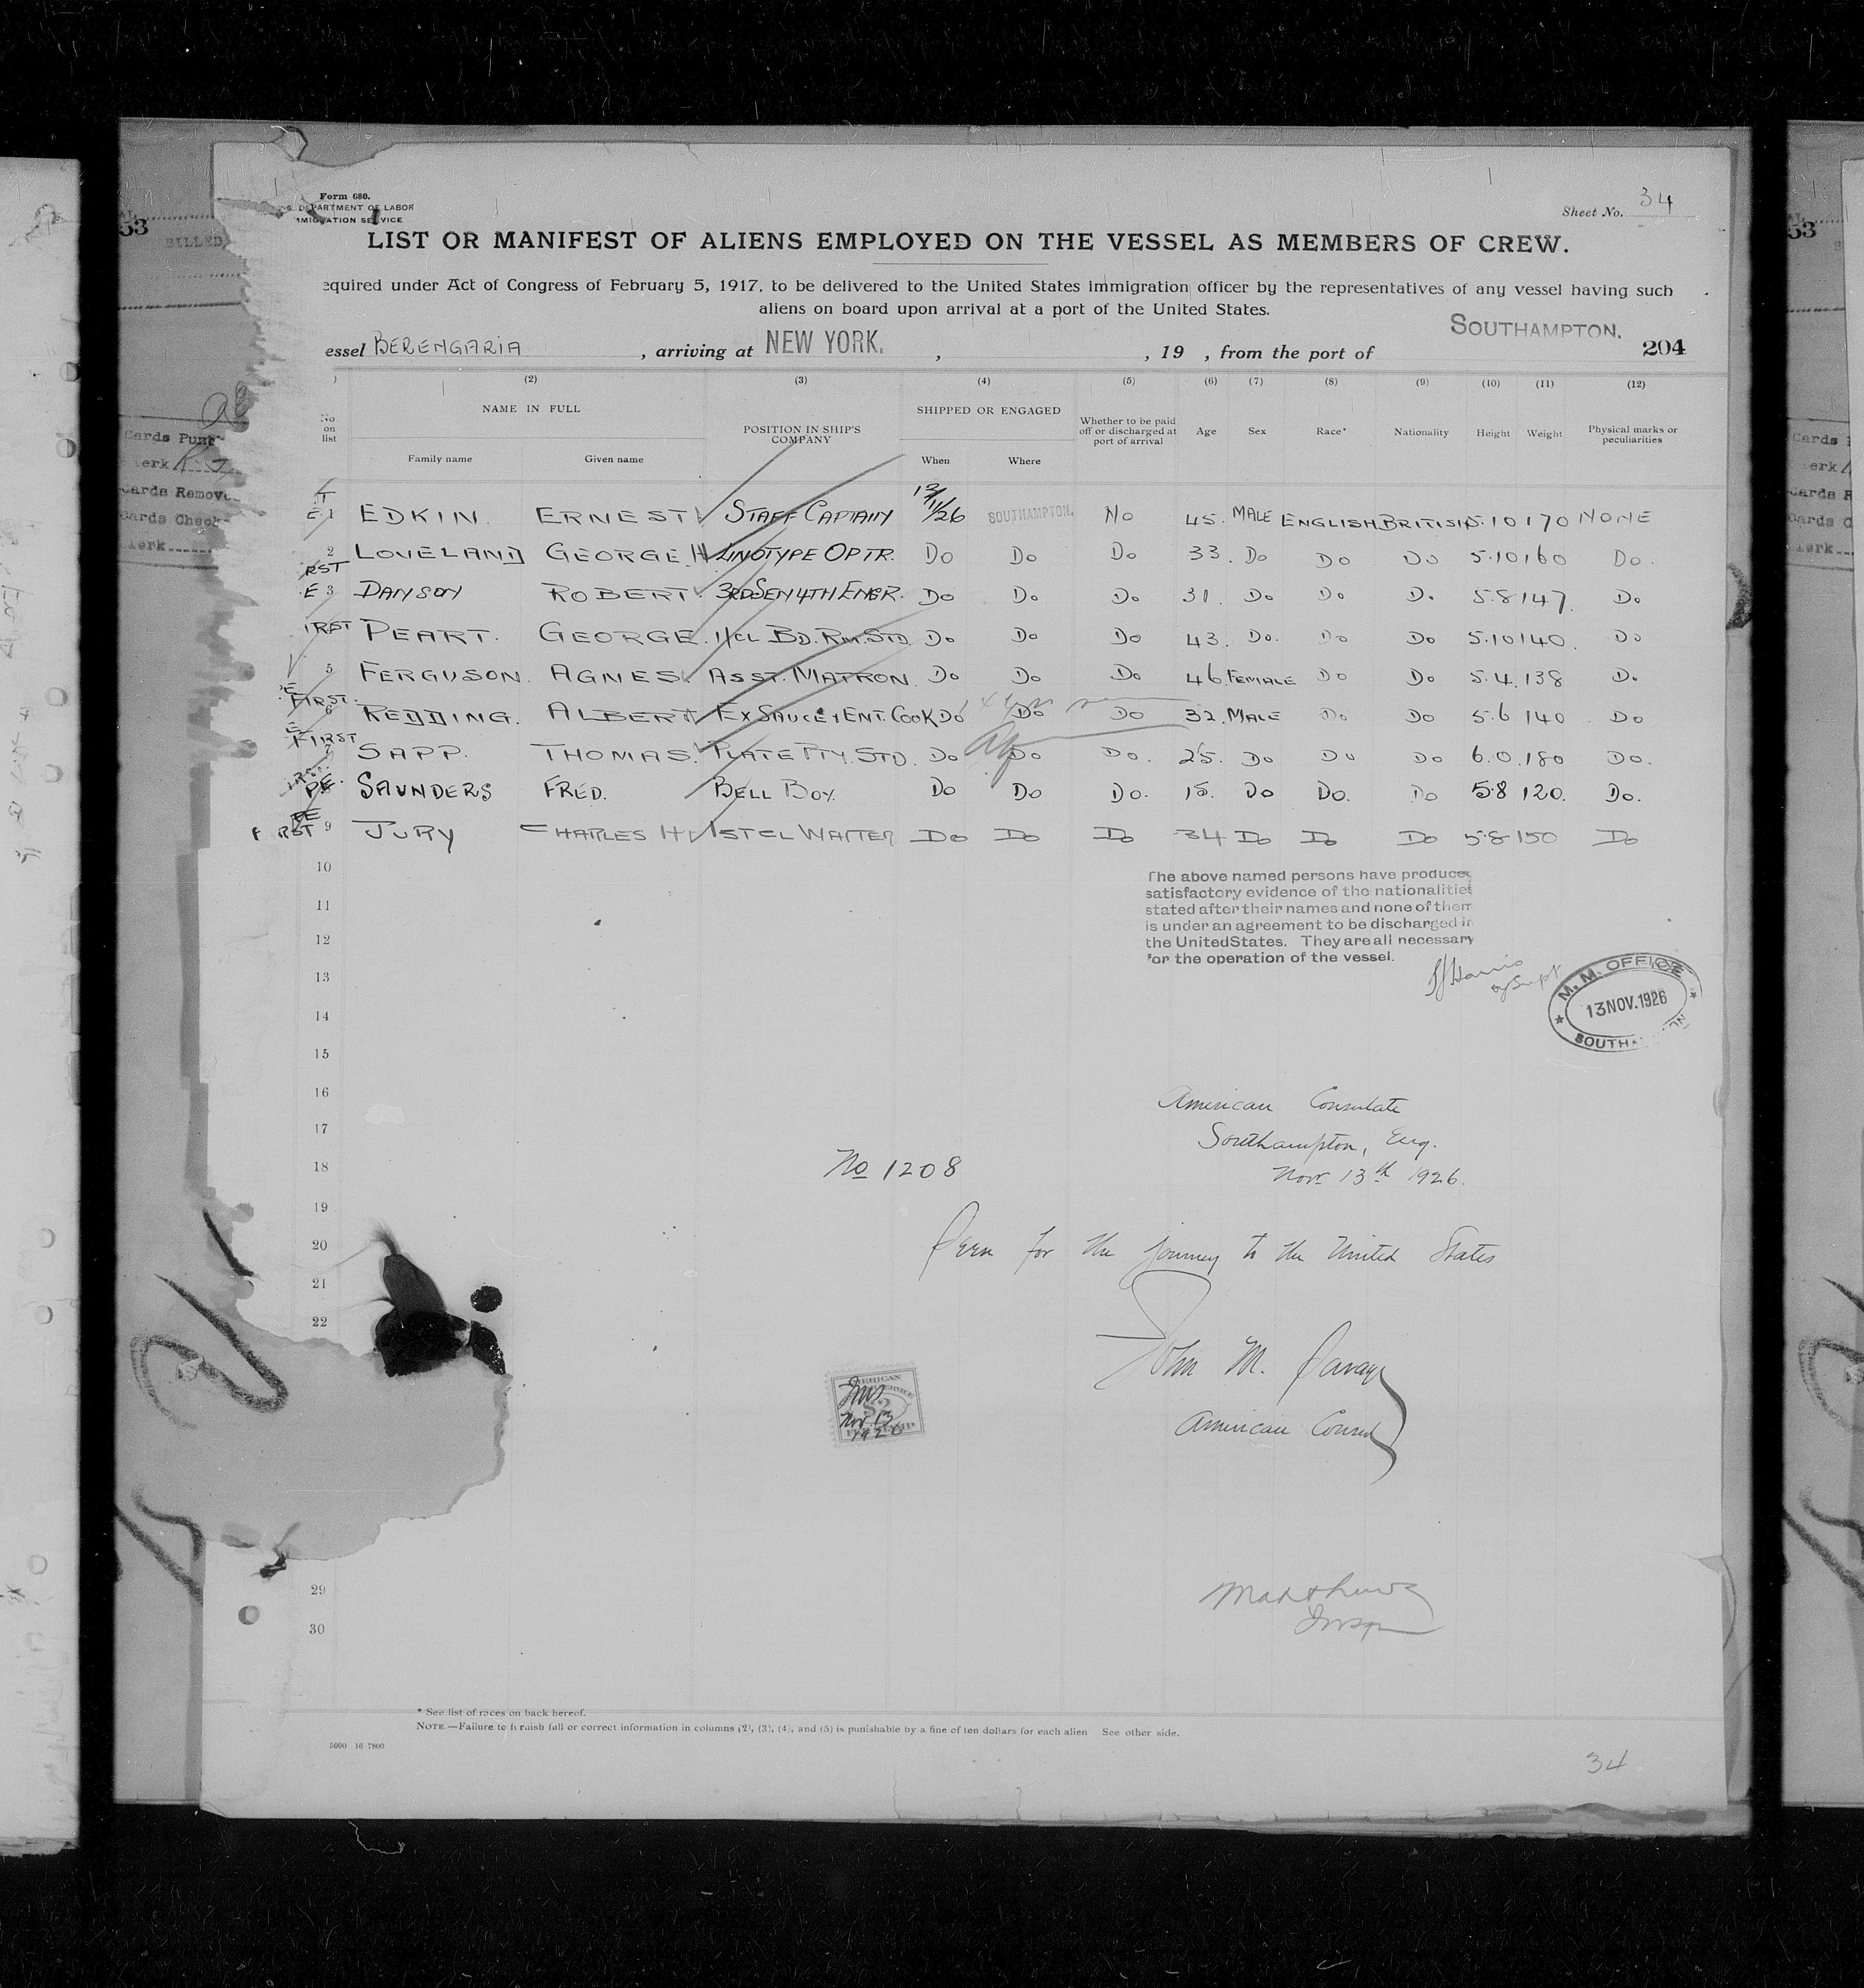 Form 680.
DEPARTMENT OF LABOR
Sheet No. 34
LIST OR MANIFEST OF ALIENS EMPLOYED ON THE VESSEL AS MEMBERS OF CREW.
equired under Act of Congress of February 5, 1917, to be delivered to the United States immigration officer by the representatives of any vessel having such
aliens on board upon arrival at a port of the United States.
essel BERENGARIA , arriving at NEW YORK. , , 19 , from the port of SOUTHAMPTON. 204
(2) (3) (4) (5) (6) (7) (8) (9) (10) (11) (12)
No on list NAME IN FULL Family name Given name POSITION IN SHIP'S COMPANY SHIPPED OR ENGAGED When Where Whether to be paid off or discharged at port of arrival Age Sex Race* Nationality Height Weight Physical marks or peculiarities
1 EDKIN. ERNEST STAFF CAPTAIN 12/11/26 SOUTHAMPTON. NO 45. MALE ENGLISH BRITISH 5.10 170 NONE
2 LOVELAND GEORGE H LINOTYPE OPTR. DO DO DO 33. DO DO DO 5.10 160 DO.
3 DANSON ROBERT 3RD SEN 4TH ENGR. DO DO DO 31. DO DO DO 5.8 147. DO
PEART. GEORGE. 1/CL BD. RM. STD DO DO DO 43. DO. DO DO 5.10 140. DO
5 FERGUSON. AGNES. ASST. MATRON. DO DO DO 46. FEMALE DO DO 5.4. 138 DO
FIRST. 6 REDDING. ALBERT EX SAUCE & ENT. COOK DO DO DO 32. MALE DO DO 5.6 140 DO
FIRST 7 SAPP. THOMAS. PLATE PTY. STD. DO DO DO. 25. DO DO DO 6.0. 180 DO.
SAUNDERS FRED. BELL BOY. DO DO DO. DO DO. DO 5.8 120. DO.
9 JURY CHARLES H 1ST CL WAITER DO DO DO 34 DO DO DO 5.8 150 DO
10
The above named persons have produced
satisfactory evidence of the nationalities
stated after their names and none of them
is under an agreement to be discharged in
the United States. They are all necessary
for the operation of the vessel.
11
12
13
M. M. OFFICE
13 NOV. 1926
14
15
16
American Consulate
17
Southampton, Eng.
18
No 1208
Nov 13th 1926.
19
20
Seen for the journey to the United States
21
22
John M. Savage
American Consul
AMERICAN
$2
Nov. 13
1926
29
30
* See list of races on back hereof.
NOTE.—Failure to furnish full or correct information in columns (2), (3), (4), and (5) is punishable by a fine of ten dollars for each alien See other side.
5000 16-7800
34